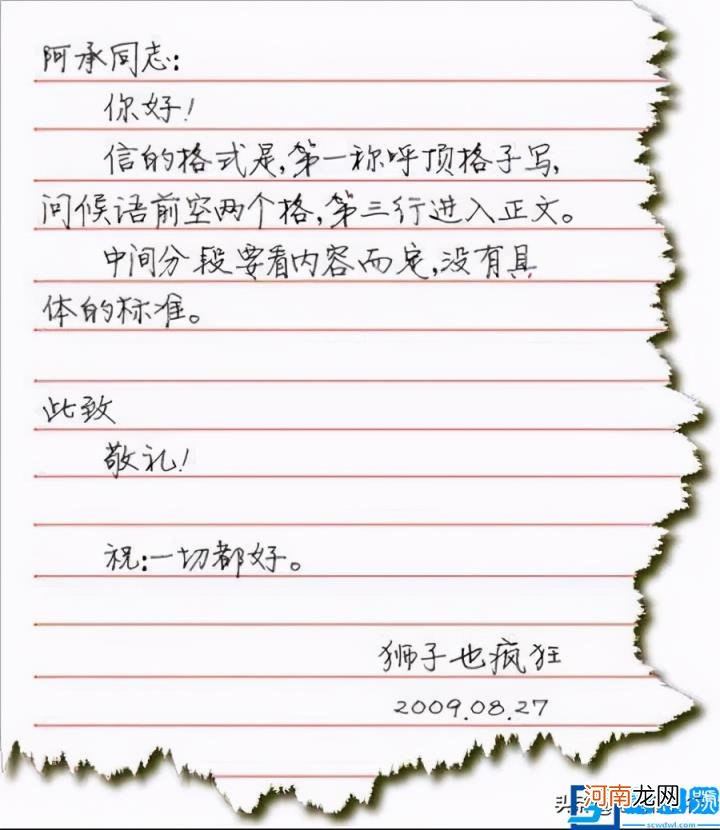 阿承同志:
你好!
信的格式是,第一称呼顶格子写,
问候语前空两个格,第三行进入正文。
中间分段要看内容而定,没有具
体的标准。
此致
敬礼!
祝:一切都好。
狮子也疯狂
2009.08.27
河南龙网
scwdwl.com